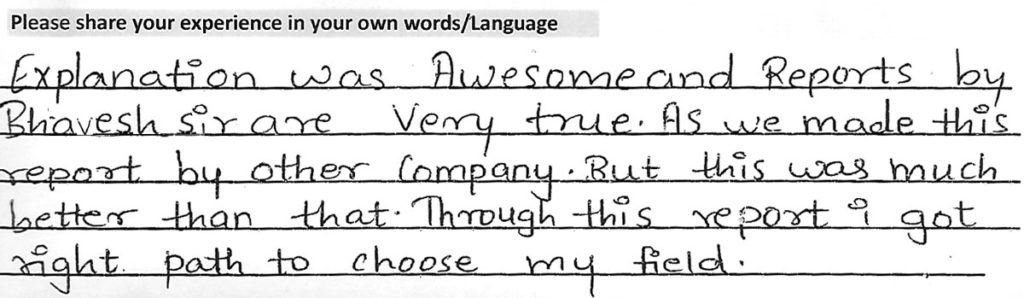 Please share your experience in your own words/Language
Explanation was Awesome and Reports by
Bhavesh sir are Very true. As we made this
report by other Company. But this was much
better than that. Through this report i got
right path to choose my field.